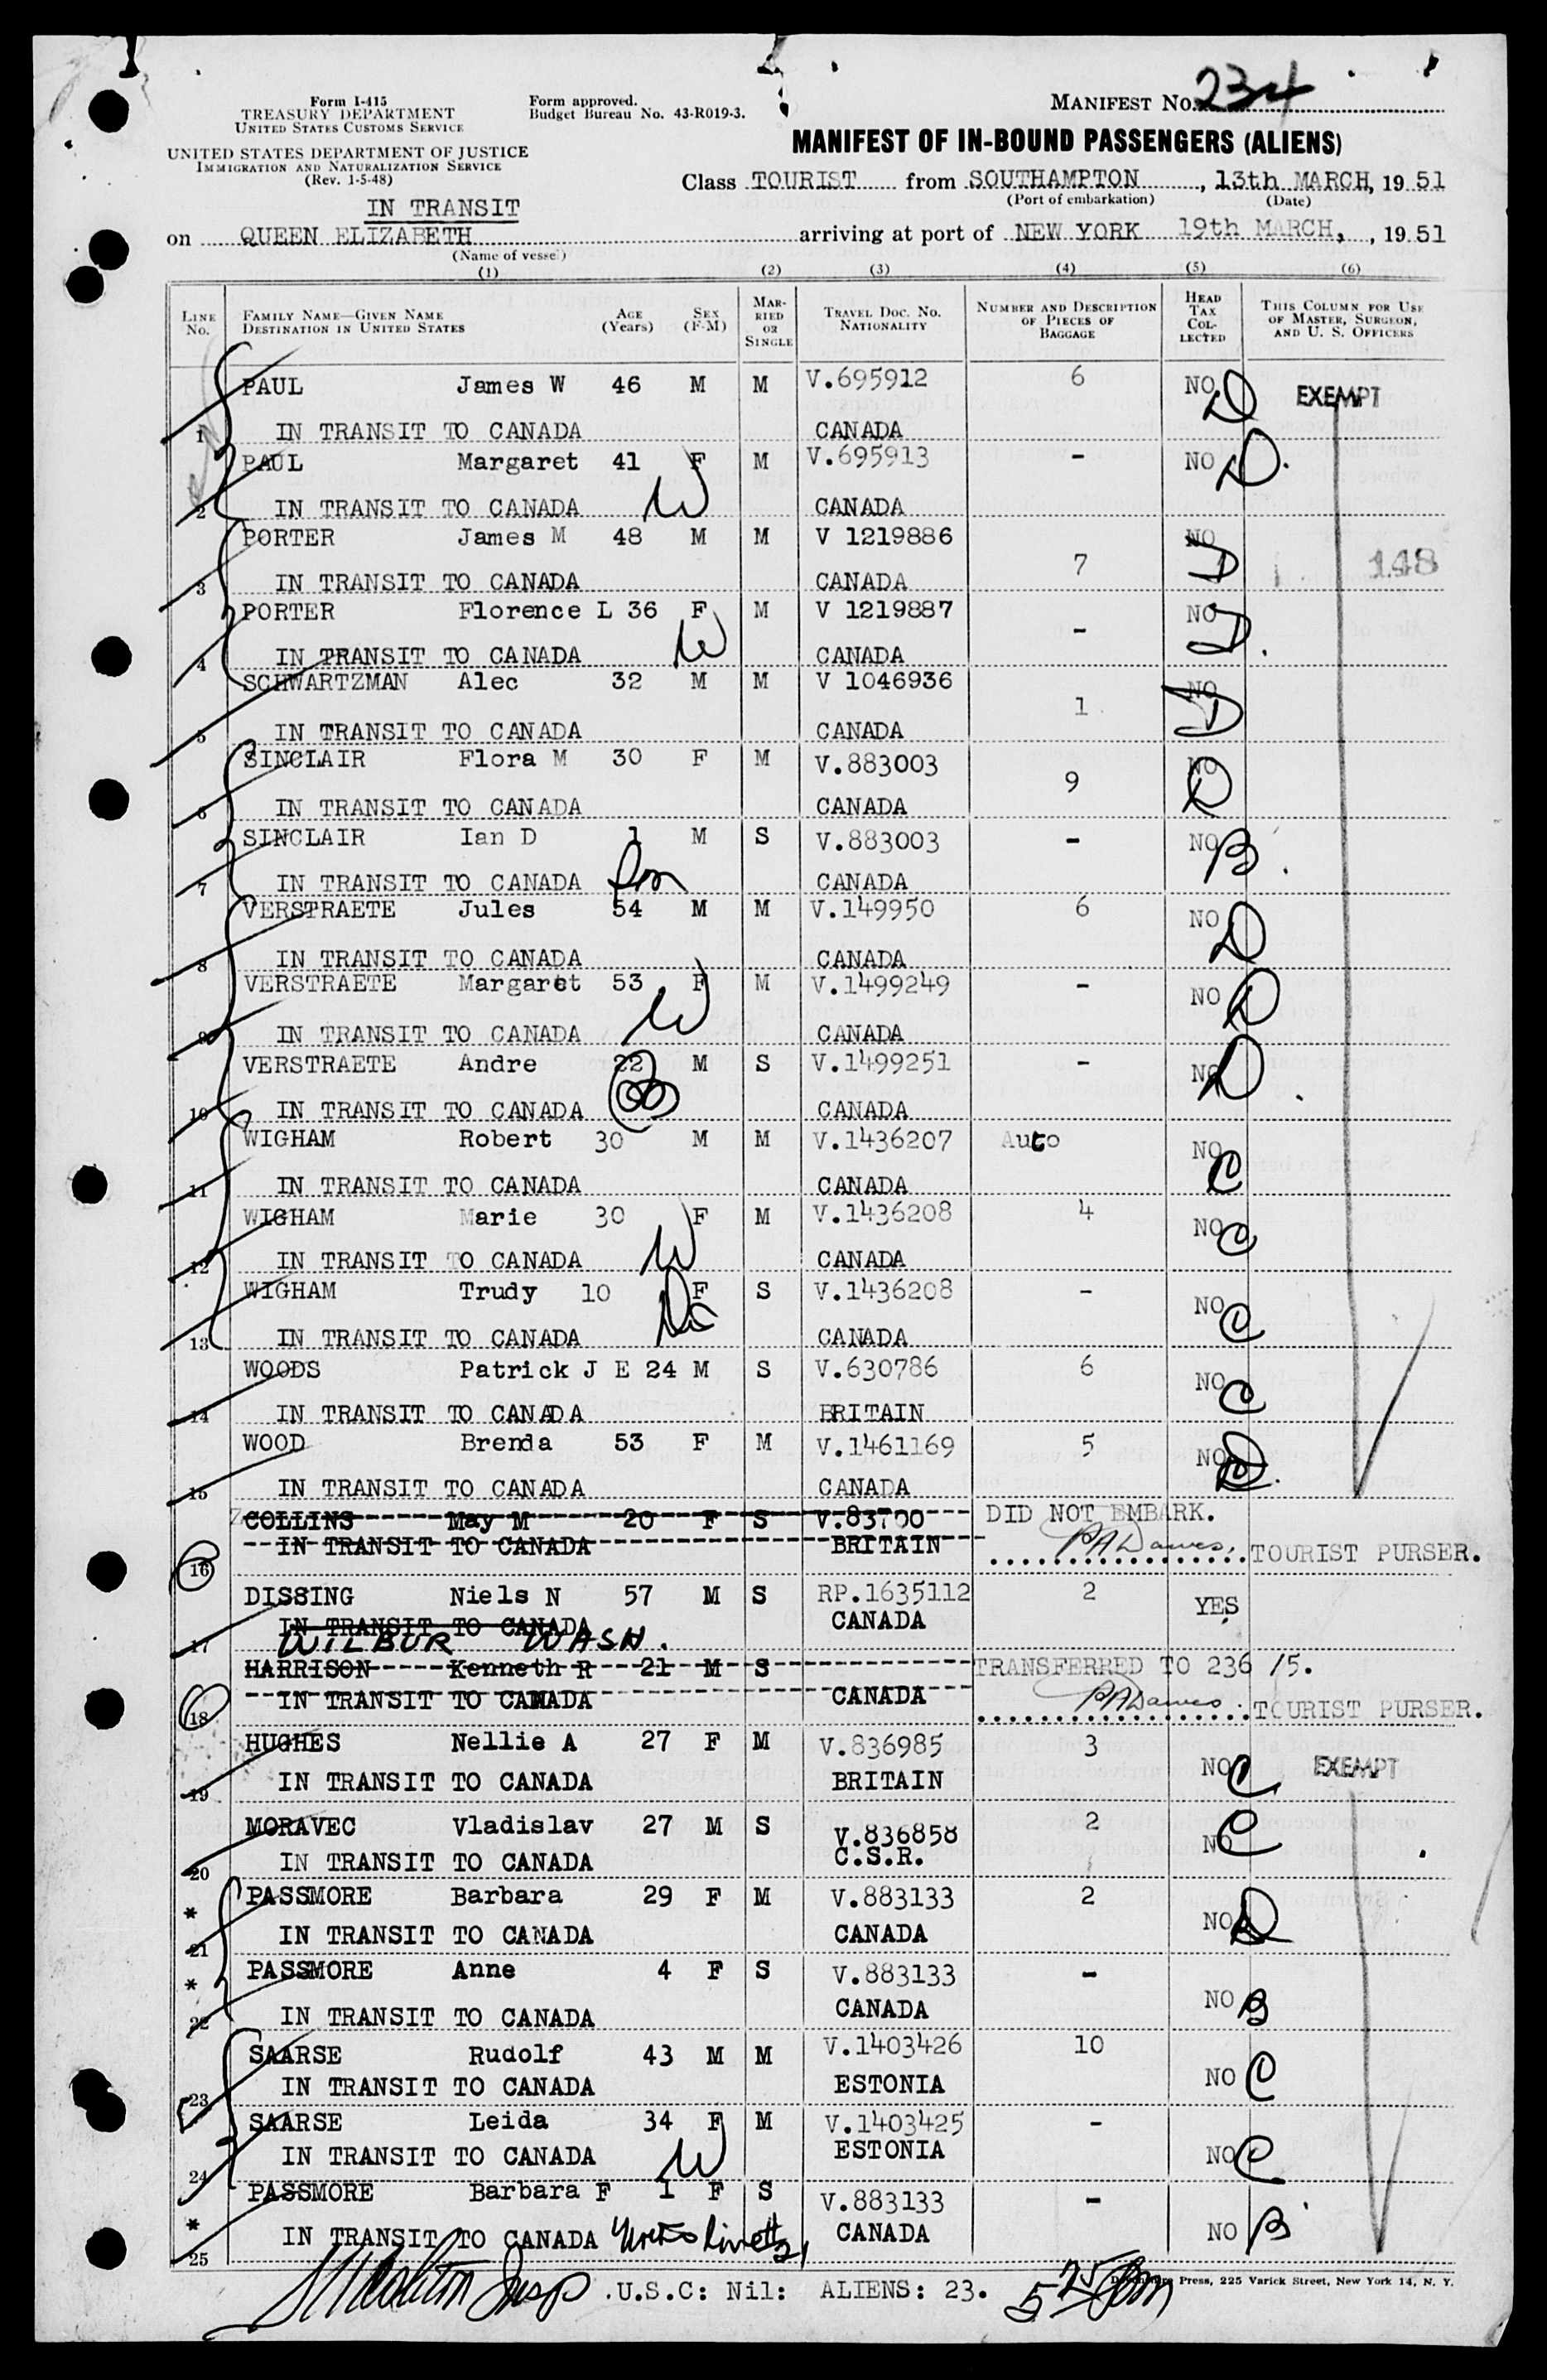 Form I-415
TREASURY DEPARTMENT
UNITED STATES CUSTOMS SERVICE
UNITED STATES DEPARTMENT OF JUSTICE
IMMIGRATION AND NATURALIZATION SERVICE
(Rev. 1-5-48)
Form approved.
Budget Bureau No. 43-R019-3.
MANIFEST No. 234
MANIFEST OF IN-BOUND PASSENGERS (ALIENS)
Class TOURIST from SOUTHAMPTON, 13th MARCH, 19 51
(Port of embarkation) (Date)
IN TRANSIT
on QUEEN ELIZABETH arriving at port of NEW YORK 19th MARCH, , 19 51
(Name of vessel)
(1) (2) (3) (4) (5) (6)
LINE No. FAMILY NAME—GIVEN NAME DESTINATION IN UNITED STATES AGE (Years) SEX (F-M) MARRIED OR SINGLE TRAVEL DOC. NO. NATIONALITY NUMBER AND DESCRIPTION OF PIECES OF BAGGAGE HEAD TAX COLLECTED THIS COLUMN FOR USE OF MASTER, SURGEON, AND U. S. OFFICERS
PAUL James W 46 M M V.695912 6 NO D EXEMPT
1 IN TRANSIT TO CANADA CANADA
PAUL Margaret 41 F M V.695913 - NO D.
2 IN TRANSIT TO CANADA W CANADA
PORTER James M 48 M M V 1219886 7 NO D 148
3 IN TRANSIT TO CANADA CANADA
PORTER Florence L 36 F M V 1219887 - NO D.
4 IN TRANSIT TO CANADA W CANADA
SCHWARTZMAN Alec 32 M M V 1046936 1 NO D
5 IN TRANSIT TO CANADA CANADA
SINCLAIR Flora M 30 F M V.883003 9 NO D
6 IN TRANSIT TO CANADA CANADA
SINCLAIR Ian D 1 M S V.883003 - NO B.
7 IN TRANSIT TO CANADA Son CANADA
VERSTRAETE Jules 54 M M V.149950 6 NO D
8 IN TRANSIT TO CANADA CANADA
VERSTRAETE Margaret 53 F M V.1499249 - NO D
9 IN TRANSIT TO CANADA W CANADA
VERSTRAETE Andre 22 M S V.1499251 - NO D.
10 IN TRANSIT TO CANADA CANADA
WIGHAM Robert 30 M M V.1436207 Auto NO C
11 IN TRANSIT TO CANADA CANADA
WIGHAM Marie 30 F M V.1436208 4 NO C
12 IN TRANSIT TO CANADA W CANADA
WIGHAM Trudy 10 F S V.1436208 - NO C
13 IN TRANSIT TO CANADA Da CANADA
WOODS Patrick J E 24 M S V.630786 6 NO C
14 IN TRANSIT TO CANADA BRITAIN
WOOD Brenda 53 F M V.1461169 5 NO D.
15 IN TRANSIT TO CANADA CANADA
COLLINS May M 20 F S V.83700 DID NOT EMBARK.
16 IN TRANSIT TO CANADA BRITAIN PADawes. TOURIST PURSER.
DISSING Niels N 57 M S RP.1635112 2 YES
IN TRANSIT TO CANADA CANADA
17 WILBUR WASH.
HARRISON Kenneth R 21 M S TRANSFERRED TO 236 /5.
18 IN TRANSIT TO CANADA CANADA PADawes. TOURIST PURSER.
HUGHES Nellie A 27 F M V.836985 3 NO C EXEMPT
19 IN TRANSIT TO CANADA BRITAIN
MORAVEC Vladislav 27 M S V.836858 2 NO C
20 IN TRANSIT TO CANADA C.S.R.
* PASSMORE Barbara 29 F M V.883133 2 NO D
21 IN TRANSIT TO CANADA CANADA
* PASSMORE Anne 4 F S V.883133 - NO B
22 IN TRANSIT TO CANADA CANADA
SAARSE Rudolf 43 M M V.1403426 10 NO C
23 IN TRANSIT TO CANADA ESTONIA
SAARSE Leida 34 F M V.1403425 - NO C
24 IN TRANSIT TO CANADA W ESTONIA
PASSMORE Barbara F 1 F S V.883133 - NO B
* 25 IN TRANSIT TO CANADA CANADA
Insp. U.S.C: Nil: ALIENS: 23. 5 25 pm
Press, 225 Varick Street, New York 14, N. Y.